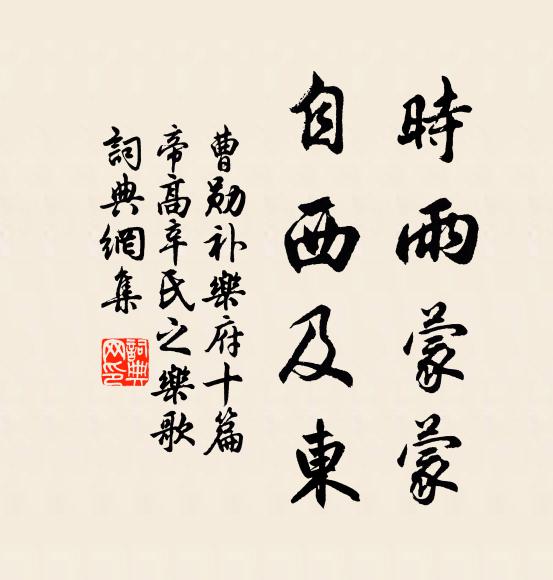 時雨蒙蒙
自西及東
曹勛补樂府十篇
帝高辛氏之樂歌
詞典網集
詞典网印